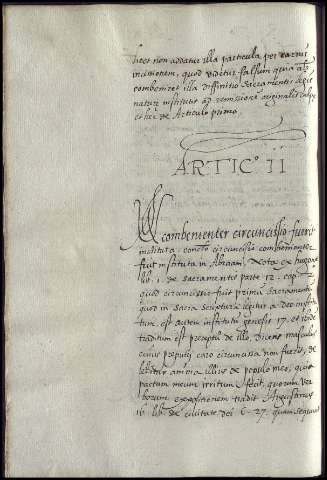 licet non addatur illa particula per carnis
incisionem, quod videtur falsum quia
combeniret illa diffinitio sacramentis legis
naturę institutis ad remissionē originalis culpę
et hęc de Articulo primo.
ARTICº. II
combenienter circuncissio fuerit
instituta: conclº circuncissio combenienter
fuit instituta in Abraam. Nota ex
lib. 1. de sacramentis parte 12. cap. 2.
quod circuncissio fuit primū sacramentū
quod in sacra scriptura legitur a deo institu
tum. est autem institutū genesis 17. et ibidē
traditum est preceptū de illo, dicens masculus
cuius prepucij caro circuncissa non fuerit, de
lebitur anima illius de populo meo, quia
pactum meum irritum fecit, quorum ver
borum expossitionem tradit Augustinus
16. lib. de civitate dei c. 27. quam